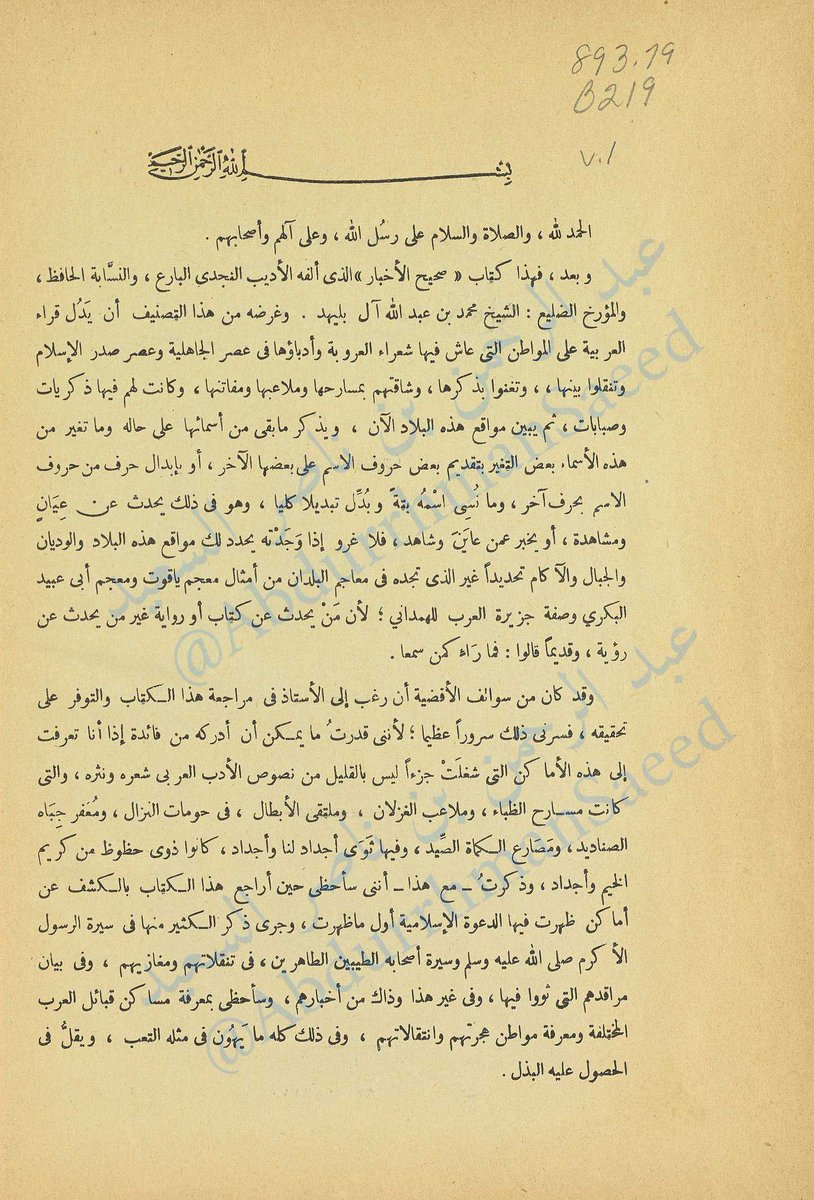 893.19
B219
v.1
بسم الله الرحمن الرحيم
الحمد لله ، والصلاة والسلام على رسُل الله ، وعلى آلهم وأصحابهم .
وبعد ، فهذا كتاب « صحيح الأخبار » الذى ألفه الأديب النجدى البارع ، والنسَّابة الحافظ ،
والمؤرخ الضليع : الشيخ محمد بن عبد الله آل بليهد . وغرضه من هذا التصنيف أن يَدُل قراء
العربية على المواطن التى عاش فيها شعراء العروبة وأدباؤها فى عصر الجاهلية وعصر صدر الإسلام
وتنقلوا بينها ، ، وتغنوا بذكرها ، وشاقتهم بمسارحها وملاعبها ومفاتنها ، وكانت لهم فيها ذكريات
وصبابات ، ثم يبين مواقع هذه البلاد الآن ، ويذكر مابقى من أسمائها على حاله وما تغير من
هذه الأسماء بعض التغير بتقديم بعض حروف الاسم على بعضها الآخر ، أو بإبدال حرف من حروف
الاسم بحرف آخر ، وما نُسِى اسْمُهُ بتةً وبُدِّل تبديلا كليا ، وهو فى ذلك يحدث عن عِيَانٍ
ومشاهدة ، أو يخبر عمن عايَنَ وشاهد ، فلا غرو إذا وَجَدْته يحدد لك مواقع هذه البلاد والوديان
والجبال والآكام تحديداً غير الذى تجده فى معاجم البلدان من أمثال معجم ياقوت ومعجم أبى عبيد
البكري وصفة جزيرة العرب للهمدانى ؛ لأن مَنْ يحدث عن كتاب أو رواية غير من يحدث عن
رؤية ، وقديماً قالوا : فما رَاءٍ كمن سمعا .
وقد كان من سوالف الأقضية أن رغب إلى الأستاذ فى مراجعة هذا الكتاب والتوفر على
تحقيقه ، فسرنى ذلك سروراً عظيما ؛ لأننى قدرتُ ما يمكن أن أدركه من فائدة إذا أنا تعرفت
إلى هذه الأماكن التى شغلَتْ جزءاً ليس بالقليل من نصوص الأدب العربى شعره ونثره ، والتى
كانت مسارح الظباء ، وملاعب الغزلان ، وملتقى الأبطال ، فى حومات النزال ، ومُعَفر جِبَاه
الصناديد ، ومَصَارع الكماة الصِّيد ، وفيها ثَوَى أجداد لنا وأجداد ، كانوا ذوى حظوظ من كريم
الخيم وأجداد ، وذكرتُ ـ مع هذا ـ أننى سأحظى حين أراجع هذا الكتاب بالكشف عن
أماكن ظهرت فيها الدعوة الإسلامية أول ماظهرت ، وجرى ذكر الكثير منها فى سيرة الرسول
الأكرم صلى الله عليه وسلم وسيرة أصحابه الطيبين الطاهرين ، فى تنقلاتهم ومغازيهم ، وفى بيان
مراقدهم التى ثووا فيها ، وفى غير هذا وذاك من أخبارهم ، وسأحظى بمعرفة مساكن قبائل العرب
المختلفة ومعرفة مواطن هجرتهم وانتقالاتهم ، وفى ذلك كله ما يَهُون فى مثله التعب ، ويقلُّ فى
الحصول عليه البذل .
عبد الرحمن بن ناصر السعيد
@AbdulrhmanSaeed
عبد الرحمن بن ناصر السعيد
@AbdulrhmanSaeed